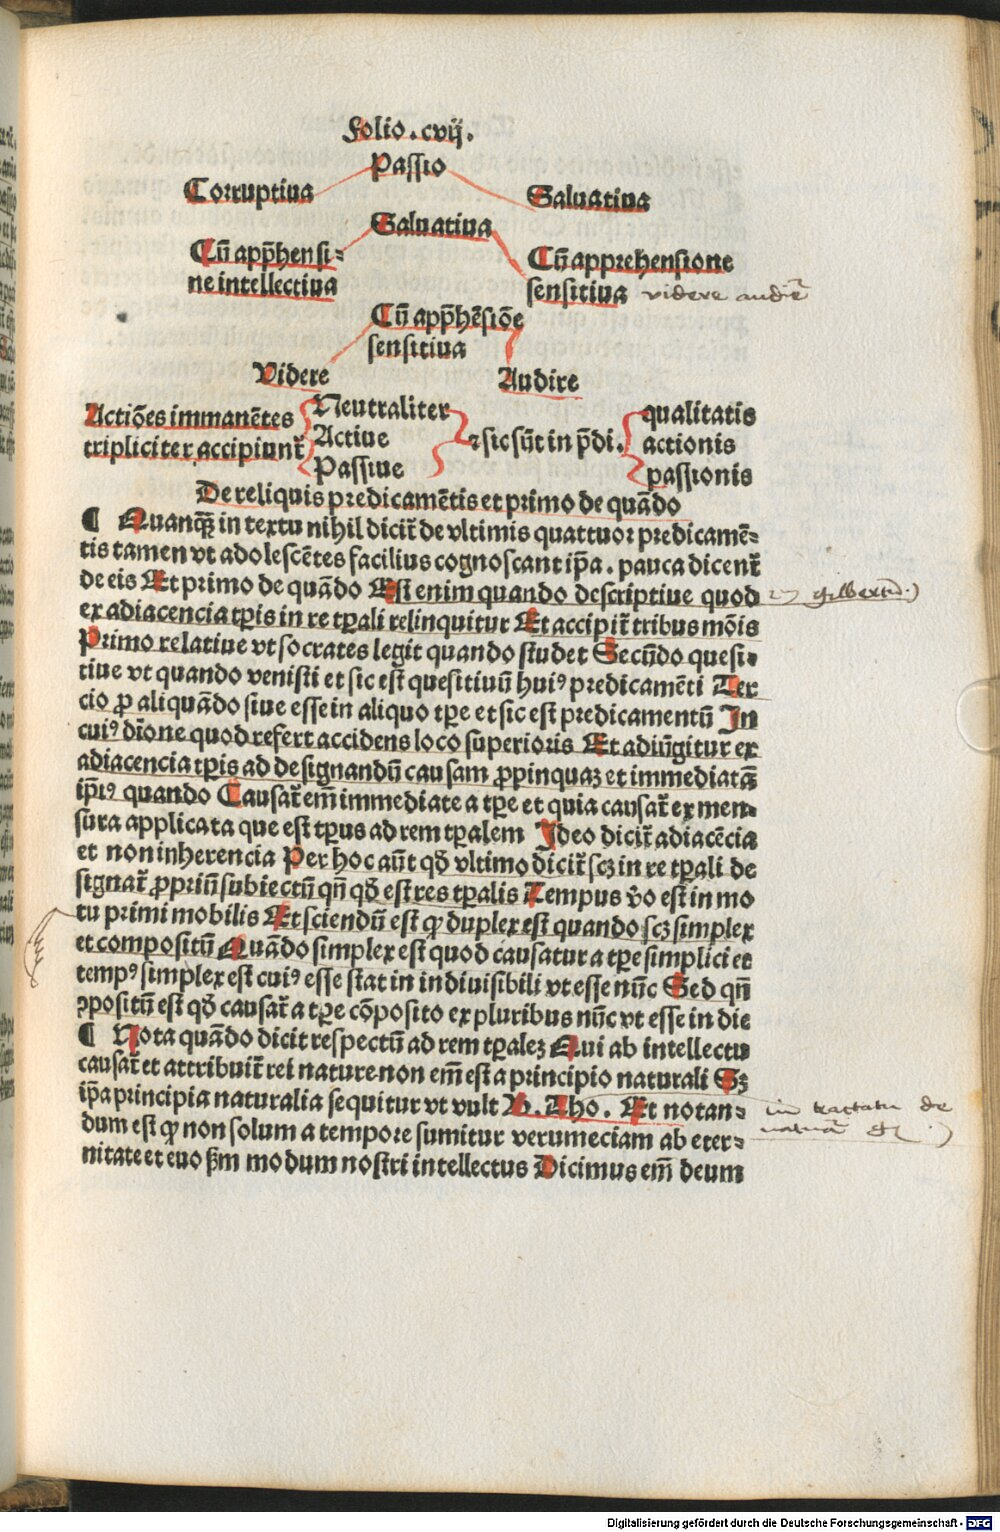 Folio.cvij.
Passio
Corruptiua Saluatiua
Saluatiua
Cū app̄hensi= Cū apprehensione
ne intellectiua sensitiua videre audīe
Cū app̄hēsiōe
sensitiua
Videre Audire
Actiōes immanētes Neutraliter qualitatis
tripliciter accipiunt̄ Actiue ⁊ sic sūt in p̄di. actionis
Passiue passionis
De reliquis predicamētis et primo de quādo
¶ Quanq̄ in textu nihil dicit̄ de vltimis quattuor predicamē=
tis tamen vt adolescētes facilius cognoscant ip̄a. pauca dicent̄
de eis Et primo de quādo Est enim quando descriptiue quod
ex adiacencia tp̄is in re tp̄ali relinquitur Et accipit̄ tribus mōis
Primo relatiue vt socrates legit quando studet Secūdo quesi=
tiue vt quando venisti et sic est quesitiuū huiꝰ predicamēti Ter
cio ꝓ aliquādo siue esse in aliquo tp̄e et sic est predicamentū In
cuiꝰ dīone quod refert accidens loco superioris Et adiūgitur ex
adiacencia tp̄is ad designandū causam ꝓpinquaꝫ et immediatā
ip̄iꝰ quando Causat̄ em̄ immediate a tp̄e et quia causat̄ ex men=
sura applicata que est tp̄us ad rem tp̄alem Ideo dicit̄ adiacēcia
et non inherencia Per hoc aūt qd̄ vltimo dicit̄ scꝫ in re tp̄ali de
signat̄ ꝓpriū subiectū qn̄ qd̄ est res tp̄alis Tempus v̄o est in mo
tu primi mobilis Et sciendū est ꝙ duplex est quando scꝫ simplex
et compositū Quādo simplex est quod causatur a tp̄e simplici et
tempꝰ simplex est cuiꝰ esse stat in indiuisibili vt esse nūc Sed qn̄
ꝯpositū est qd̄ causat̄ a tp̄e cōposito ex pluribus nūc vt esse in die
¶ Nota quādo dicit respectū ad rem tp̄aleꝫ Qui ab intellectu
causat̄ et attribuit̄ rei nature non em̄ est a principio naturali Sꝫ
ip̄a principia naturalia sequitur vt vult B. Tho. Et notan= in tractatu de
dum est ꝙ non solum a tempore sumitur verumeciam ab eter=
nitate et euo s̄m modum nostri intellectus Dicimus em̄ deum